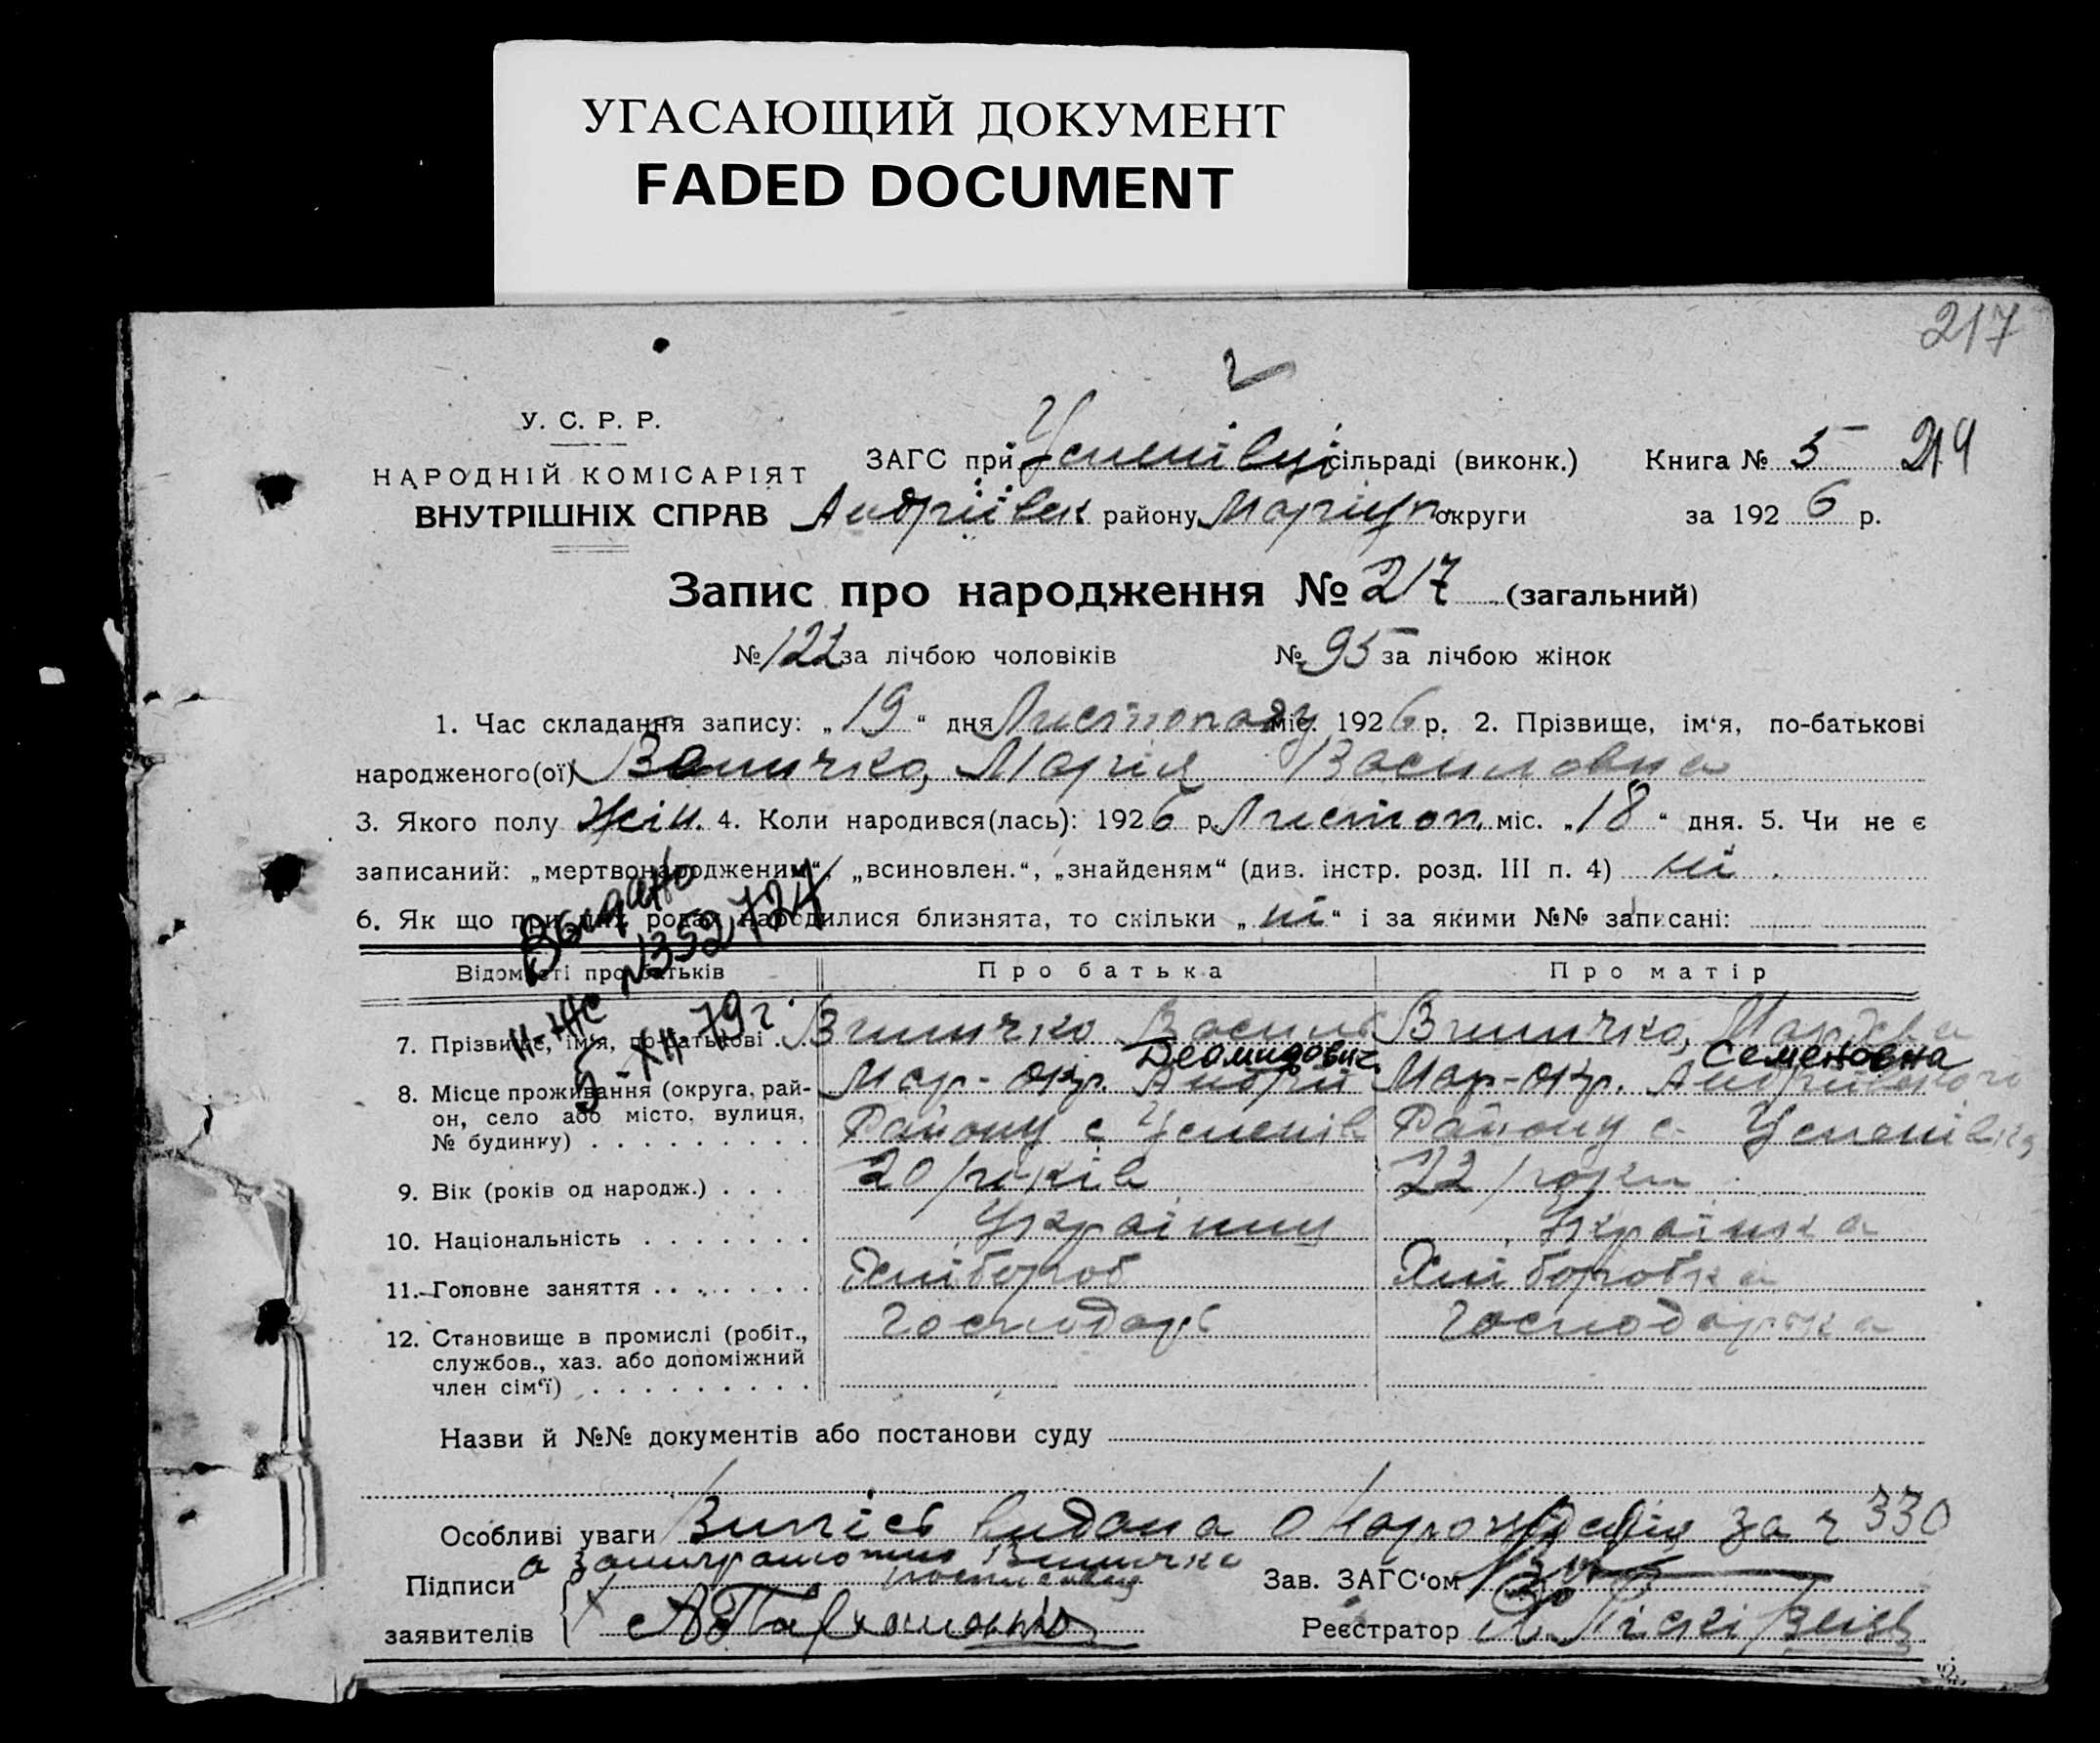 УГАСАЮЩИЙ ДОКУМЕНТ
FADED DOCUMENT
217
У. С. Р. Р.
НАРОДНІЙ КОМІСАРІЯТ
ВНУТРІШНІХ СПРАВ
ЗАГС при Успенівці сільраді (виконк.)
Андріївськ району Маріуп округи
Книга № 5 219
за 1926 р.
Запис про народження № 217 (загальний)
№ 122 за лічбою чоловіків № 95 за лічбою жінок
1. Час складання запису: „19“ дня Листопаду міс. 1926 р. 2. Прізвище, ім‘я, по-батькові
народженого(ої) Марія Василовна
3. Якого полу жін. 4. Коли народився(лась): 1926 р. Листоп. міс. „18“ дня. 5. Чи не є
записаний: „мертвонародженим“, „всиновлен.“, „знайденям“ (див. інстр. розд. III п. 4) ні
6. Як що при цих родах народилися близнята, то скільки „ні“ і за якими №№ записані:
Выдано
II-ЖС №352724
5-XII 79 г.
Відомості про батьків Про батька Про матір
7. Прізвище, ім‘я, по-батькові . . Василь Деомидович Семеновна
8. Місце проживання (округа, район, село або місто, вулиця, № будинку) . . . . . . . . . .
Мар-окр. Андрії
Району с Успенів
Мар-окр. Андріївского
Району с. Успенівка
9. Вік (років од народж.) . . . 20 років 22 роки
10. Національність . . . . . . . Українец Українка
11. Головне заняття . . . . . . . Хлібороб Хліборобка
12. Становище в промислі (робіт., службов., хаз. або допоміжний член сім‘ї) . . . . . . . . . .
господарь господарька
Назви й №№ документів або постанови суду
Особливі уваги Випісь видана о народженію за ч 330
Підписи
заявителів
Зав. ЗАГС‘ом
Реєстратор